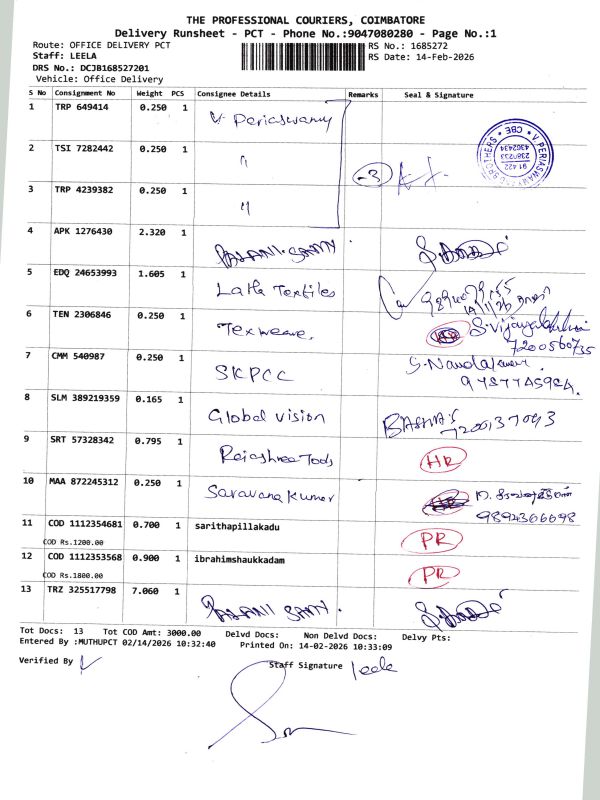 THE PROFESSIONAL COURIERS, COIMBATORE
Delivery Runsheet - PCT - Phone No.:9047080280 - Page No.:1
Route: OFFICE DELIVERY PCT
RS No.: 1685272
Staff: LEELA
RS Date: 14-Feb-2026
DRS No.: DCJB168527201
Vehicle: Office Delivery
S No Consignment No Weight PCS Consignee Details Remarks Seal & Signature
1 TRP 649414 0.250 1 V. Periaswamy
2 TSI 7282442 0.250 1 "
-3
V. PERIASWAMY BROTHERS CBE
91 422
2380233
4302434
3 TRP 4239382 0.250 1 "
4 APK 1276430 2.320 1 PALANI. SAMY
5 EDQ 24653993 1.605 1 Latha Textiles
6 TEN 2306846 0.250 1 Texweave. S. Vijayalakshmi
7200560735
7 CMM 540987 0.250 1 SKPCC S. Nandakumar
8 SLM 389219359 0.165 1 Global vision
7200137093
9 SRT 57328342 0.795 1 Rajashree Tools HR
10 MAA 872245312 0.250 1 Saravana kumar
9894366698
11 COD 1112354681 0.700 1 sarithapillakadu PR
COD Rs.1200.00
12 COD 1112353568 0.900 1 ibrahimshaukkadam PR
COD Rs.1800.00
13 TRZ 325517798 7.060 1 PALANI SAMY.
Tot Docs: 13 Tot COD Amt: 3000.00 Delvd Docs: Non Delvd Docs: Delvy Pts:
Entered By :MUTHUPCT 02/14/2026 10:32:40 Printed On: 14-02-2026 10:33:09
Verified By Staff Signature leela